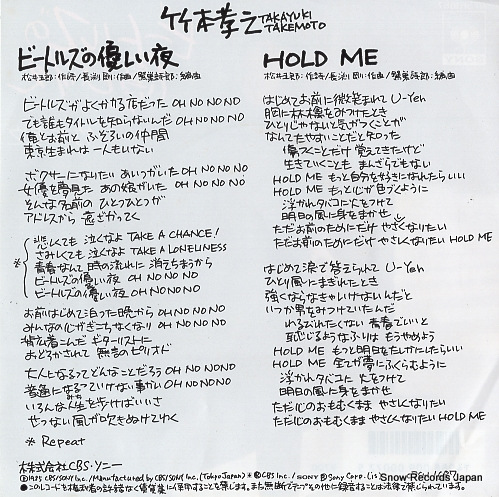 竹本孝之 TAKAYUKI TAKEMOTO
ビートルズの優しい夜
松井五郎:作詩/長渕剛:作曲/鷺巣詩郎:編曲
ビートルズがよくかかる店だった OH NO NO NO
でも誰もタイトルを知らないんだ OH NO NO NO
俺とお前と ふぞろいの仲間
東京生まれは 一人もいない
ボクサーになりたい あいつがいた OH NO NO NO
女優を夢見た あの娘がいた OH NO NO NO
そんな名前の ひとつひとつが
アドレスから 遠ざかってく
※
悲しくても 泣くなよ TAKE A CHANCE!
さみしくても 泣くなよ TAKE A LONELINESS
青春なんて 時の流れに 消えちまうから
ビートルズの優しい夜 OH NO NO NO
ビートルズの優しい夜 OH NO NO NO
お前はじめて泊った晩から OH NO NO NO
みんなの心がぎこちなくなり OH NO NO NO
おどろかされて 無言のピリオド
大人になるってどんなことだろう OH NO NO NO
普通になるっていけない事かい OH NO NO NO
いろんな人生を歩けばいいさ
せつない風が吹きぬけてゆく
※ Repeat
HOLD ME
松井五郎:作詩/長渕剛:作曲/鷺巣詩郎:編曲
はじめてお前に微笑まれて U-Yeh
ひとりじゃないと気がつくことが
なんてたやすいことだと知った
傷つくことだけ 覚えてきたけど
生きていくことも まんざらでもない
HOLD ME もっと自分を好きになれたらいい
HOLD ME もっと心が色づくように
浮かんだタバコに 火をつけて
明日の風に 身をまかせ
ただお前のためにだけ やさしくなりたい
ただお前のためにだけ やさしくなりたい HOLD ME
はじめて涙で答えられて U-Yeh
ひとり風にまぎれたとき
強くならなきゃいけないんだと
いつか男をみつけていたんだ
恥じるようなふりは もうやめよう
HOLD ME もっと明日をたしかにしたらいい
HOLD ME 全てが夢にふくらむように
浮かんだタバコに 火をつけて
明日の風に 身をまかせ
ただ心のおもむくまま やさしくなりたい
ただ心のおもむくまま やさしくなりたい HOLD ME
株式会社CBS・ソニー
Snow Records Japan